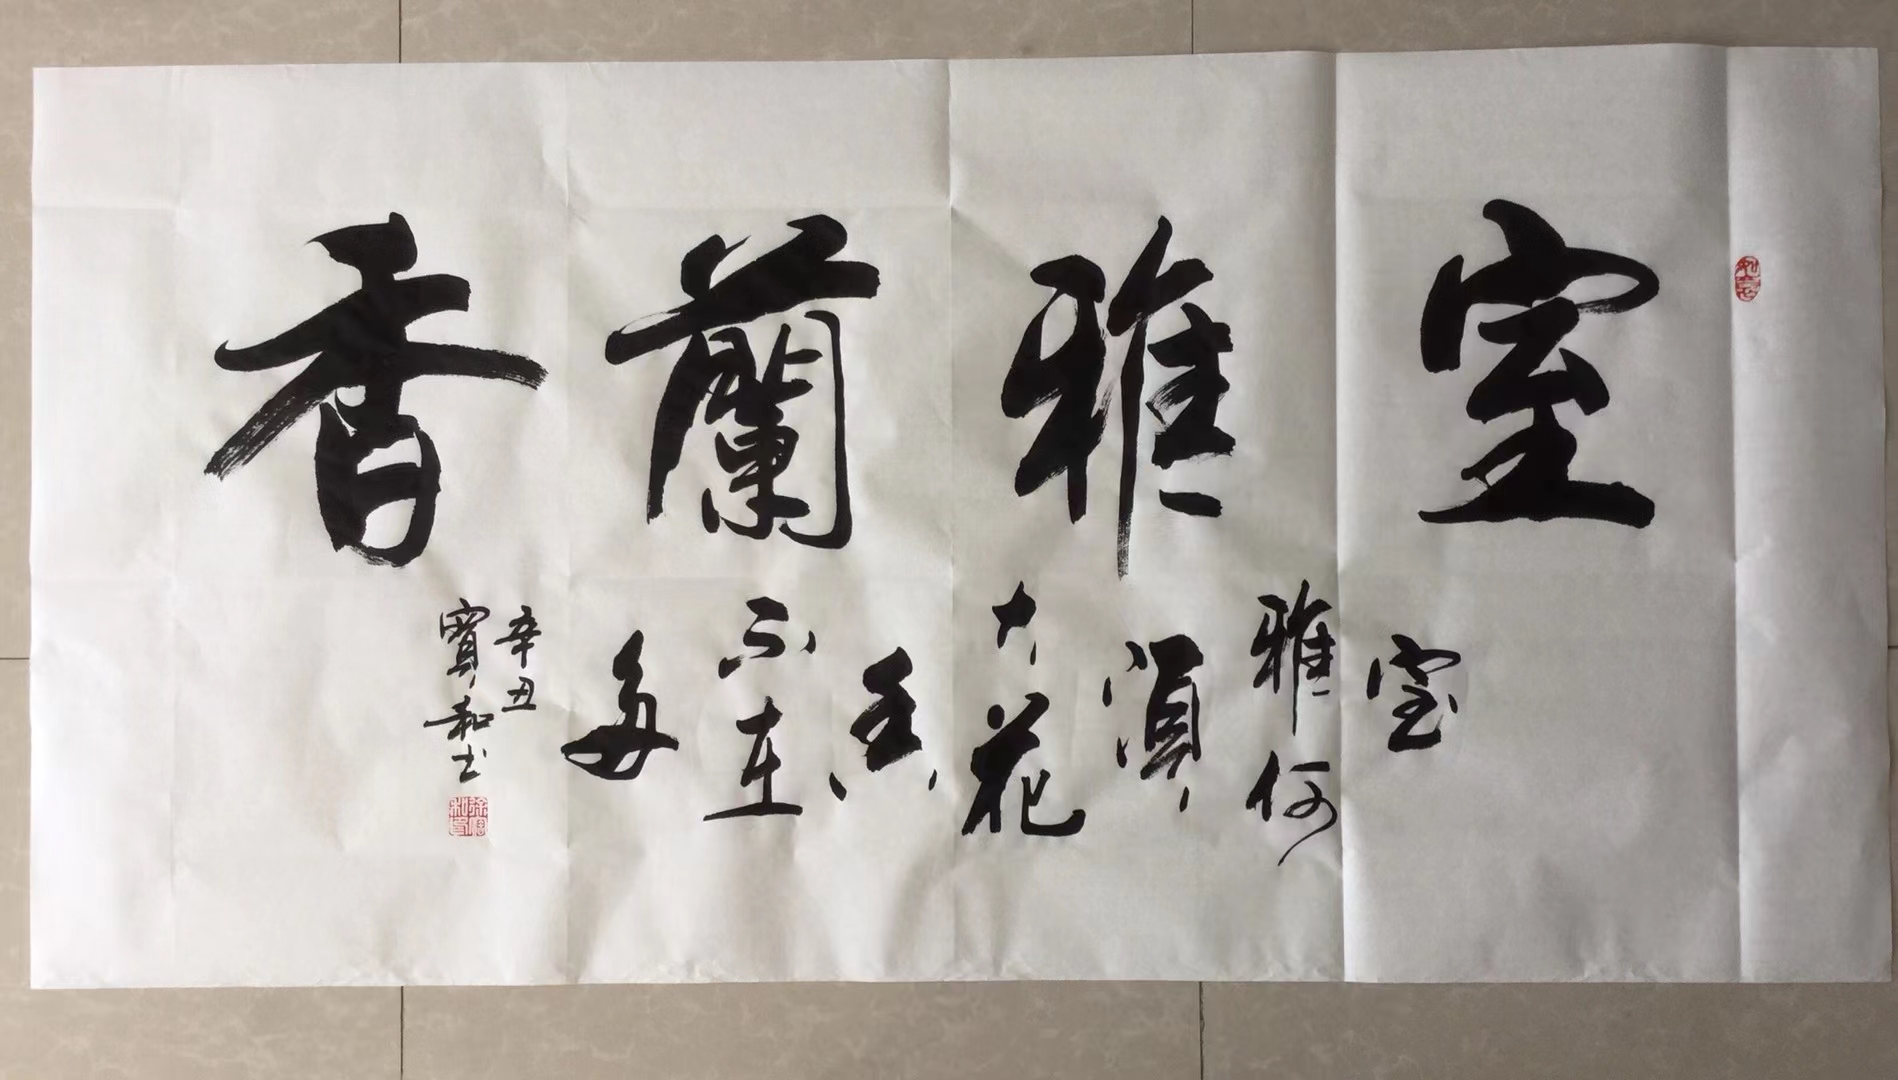 室雅蘭香
室
雅何
須
大花
香
不在
多
辛丑
賓和书
如意